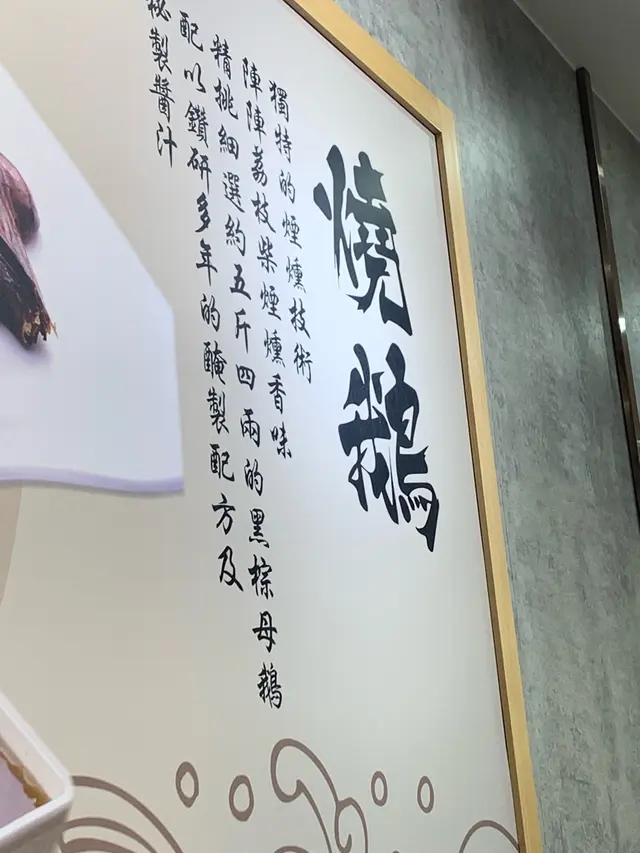 燒鵝
獨特的煙燻技術
陣陣荔枝柴煙燻香味
精挑細選約五斤四兩的黑棕母鵝
配以鑽研多年的醃製配方及
秘製醬汁